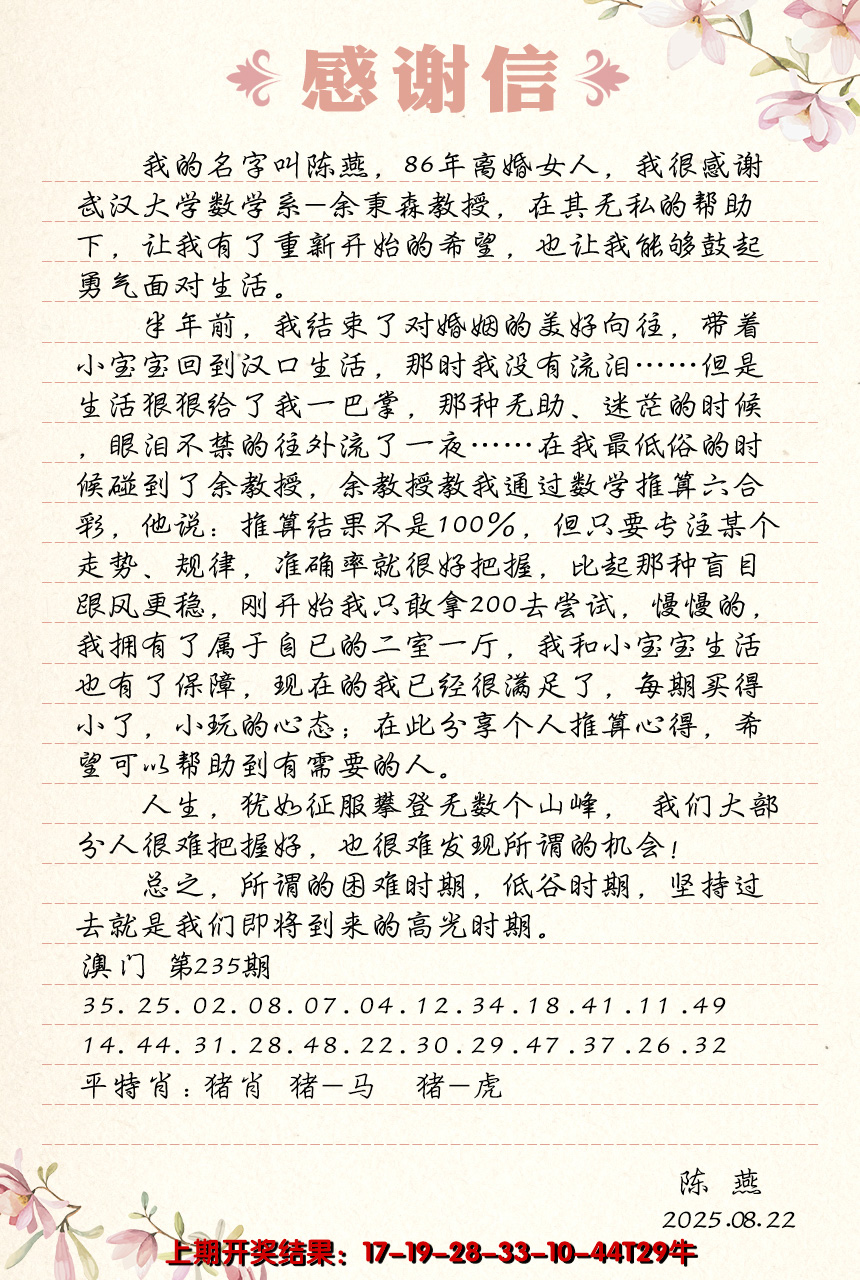 感谢信
我的名字叫陈燕，86年离婚女人，我很感谢
武汉大学数学系-余秉森教授，在其无私的帮助
下，让我有了重新开始的希望，也让我能够鼓起
勇气面对生活。
半年前，我结束了对婚姻的美好向往，带着
小宝宝回到汉口生活，那时我没有流泪……但是
生活狠狠给了我一巴掌，那种无助、迷茫的时候
，眼泪不禁的往外流了一夜……在我最低俗的时
候碰到了余教授，余教授教我通过数学推算六合
彩，他说：推算结果不是100%，但只要专注某个
走势、规律，准确率就很好把握，比起那种盲目
跟风更稳，刚开始我只敢拿200去尝试，慢慢的，
我拥有了属于自已的二室一厅，我和小宝宝生活
也有了保障，现在的我已经很满足了，每期买得
小了，小玩的心态；在此分享个人推算心得，希
望可以帮助到有需要的人。
人生，犹如征服攀登无数个山峰， 我们大部
分人很难把握好，也很难发现所谓的机会！
总之，所谓的困难时期，低谷时期，坚持过
去就是我们即将到来的高光时期。
澳门 第235期
35.25.02.08.07.04.12.34.18.41.11.49
14.44.31.28.48.22.30.29.47.37.26.32
平特肖：猪肖 猪-马 猪-虎
陈 燕
2025.08.22
上期开奖结果：17-19-28-33-10-44T29牛